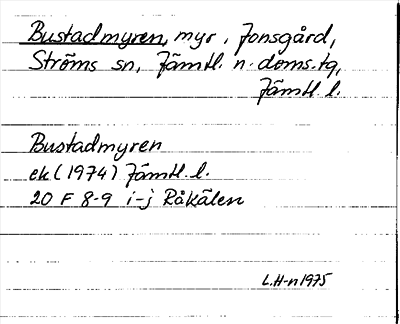 Bustadmyren, myr, Jonsgård,
Ströms sn, Jämtl. n. doms.tg,
Jämtl. l.
Bustadmyren
ek (1974) Jämtl. l.
20 F 8-9 i-j Råkälen
L.H-n 1975